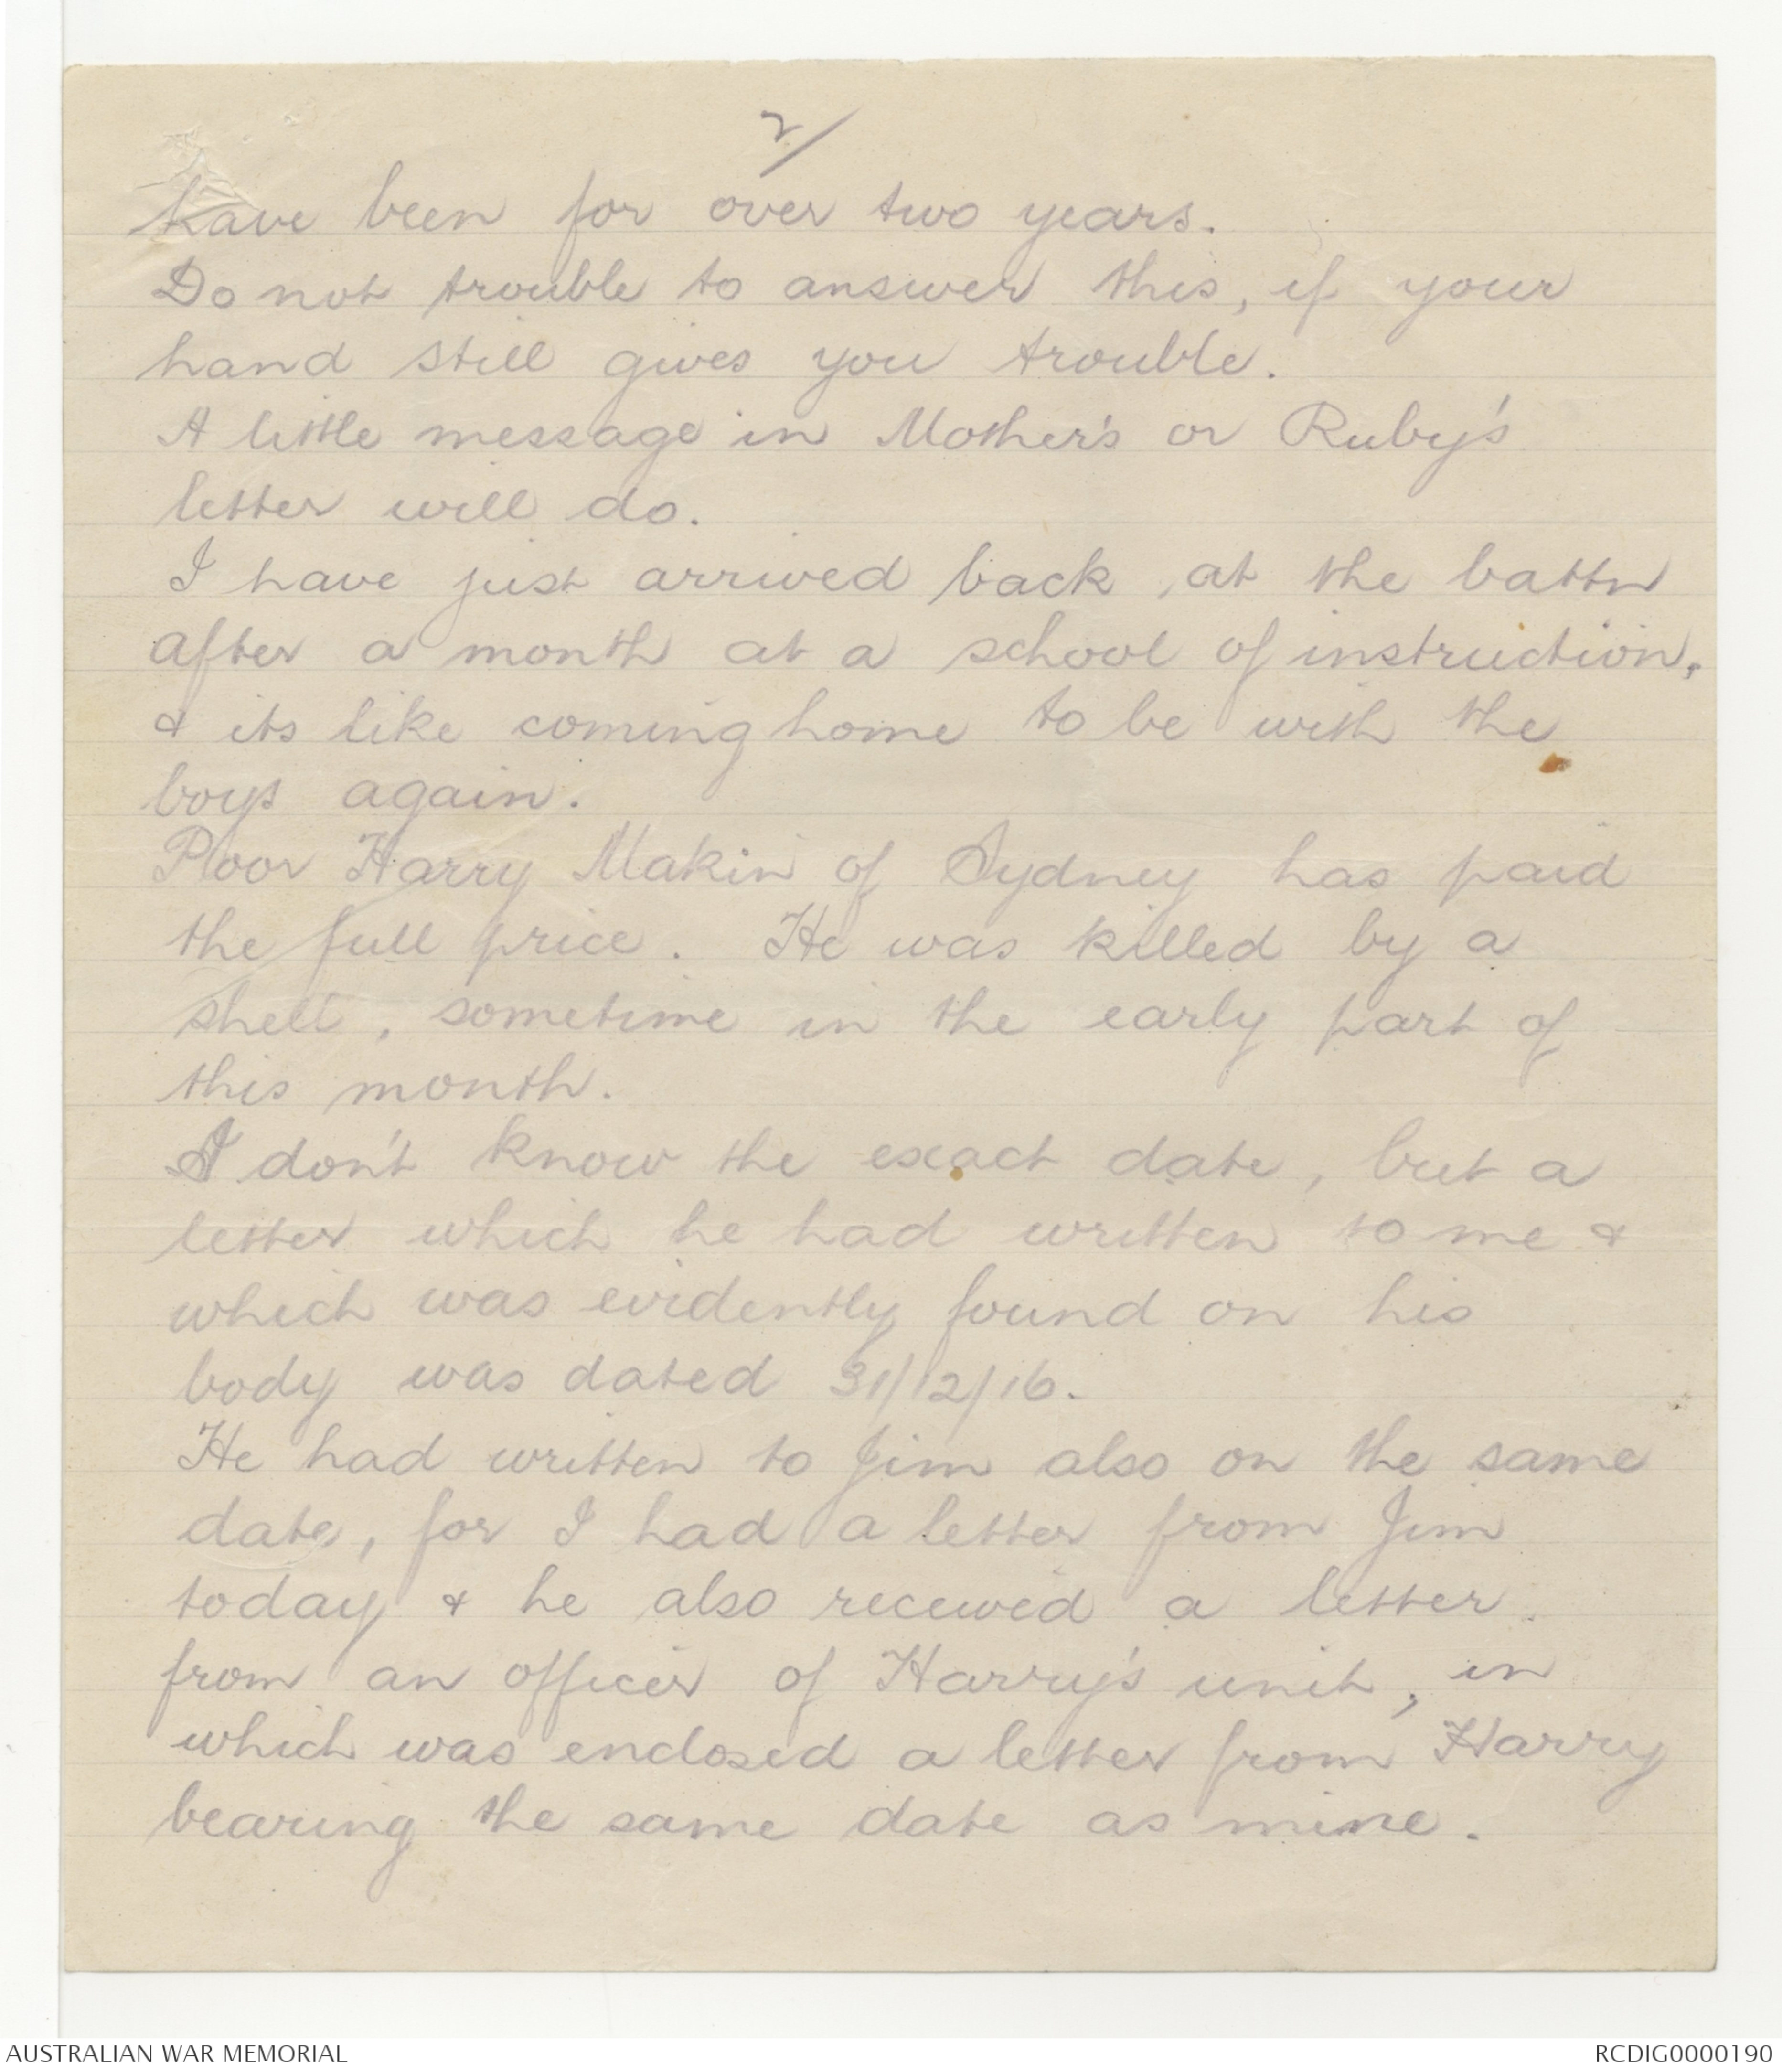 2/
have been for over two years.
Do not trouble to answer this, if your
hand still gives you trouble.
A little message in Mother's or Ruby's
letter will do.
I have just arrived back at the battn
after a month at a school of instruction,
& its like coming home to be with the
boys again.
Poor Harry Makin of Sydney has paid
the full price. He was killed by a
shell, sometime in the early part of
this month.
I don't know the exact date, but a
letter which he had written to me &
which was evidently found on his
body was dated 31/12/16.
He had written to Jim also on the same
date, for I had a letter from Jim
today & he also received a letter
from an officer of Harry's unit, in
which was enclosed a letter from Harry
bearing the same date as mine.
AUSTRALIAN WAR MEMORIAL
RCDIG0000190